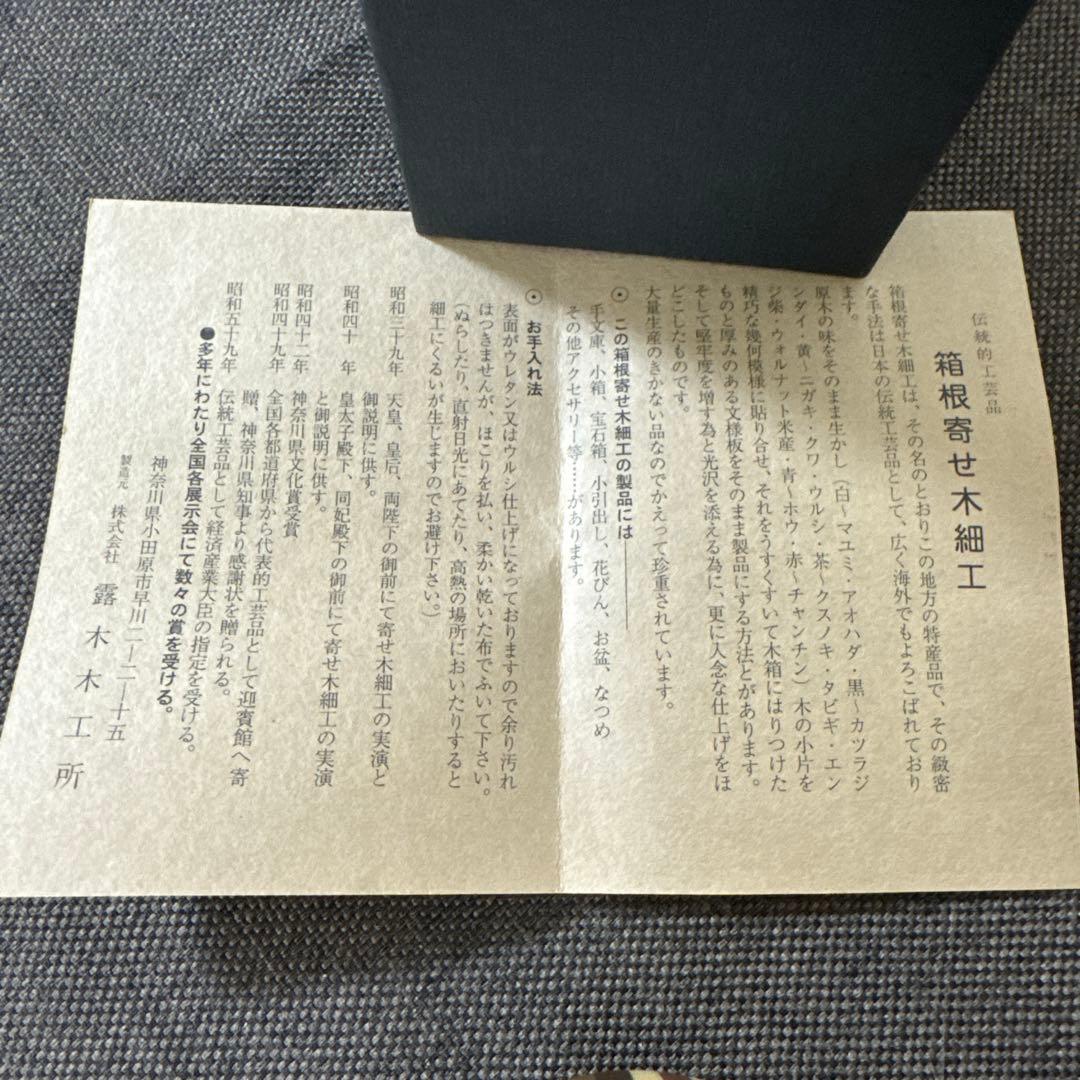 伝統的工芸品
箱根寄せ木細工
箱根寄せ木細工は、その名のとおりこの地方の特産品で、その緻密
な手法は日本の伝統工芸品として、広く海外でもよろこばれており
ます。
原木の味をそのまま生かし（白～マユミ・アオハダ・黒～カツラジ
ンダイ・黄～ニガキ・クワ・ウルシ・茶～クスノキ・タビギ・エン
ジ柴・ウォルナット米産・青～ホウ・赤～チャンチン）木の小片を
精巧な幾何模様に貼り合せ、それをうすくすいて木箱にはりつけた
ものと厚みのある文様板をそのまま製品にする方法とがあります。
そして堅牢度を増す為と光沢を添える為に、更に入念な仕上げをほ
どこしたものです。
大量生産のきかない品なのでかえって珍重されています。
⊙ この箱根寄せ木細工の製品には
手文庫、小箱、宝石箱、小引出し、花びん、お盆、なつめ
その他アクセサリー等……があります。
⊙ お手入れ法
表面がウレタン又はウルシ仕上げになっておりますので余り汚れ
はつきませんが、ほこりを払い、柔かい乾いた布でふいて下さい。
（ぬらしたり、直射日光にあてたり、高熱の場所においたりすると
細工にくるいが生じますのでお避け下さい。）
昭和三十九年 天皇、皇后、両陛下の御前にて寄せ木細工の実演と
御説明に供す。
昭和四十年 皇太子殿下、同妃殿下の御前にて寄せ木細工の実演
と御説明に供す。
昭和四十二年 神奈川県文化賞受賞
昭和四十九年 全国各都道府県から代表的工芸品として迎賓館へ寄
贈、神奈川県知事より感謝状を贈られる。
昭和五十九年 伝統工芸品として経済産業大臣の指定を受ける。
●多年にわたり全国各展示会にて数々の賞を受ける。
神奈川県小田原市早川二―二―十五
製造元 株式会社 露木木工所